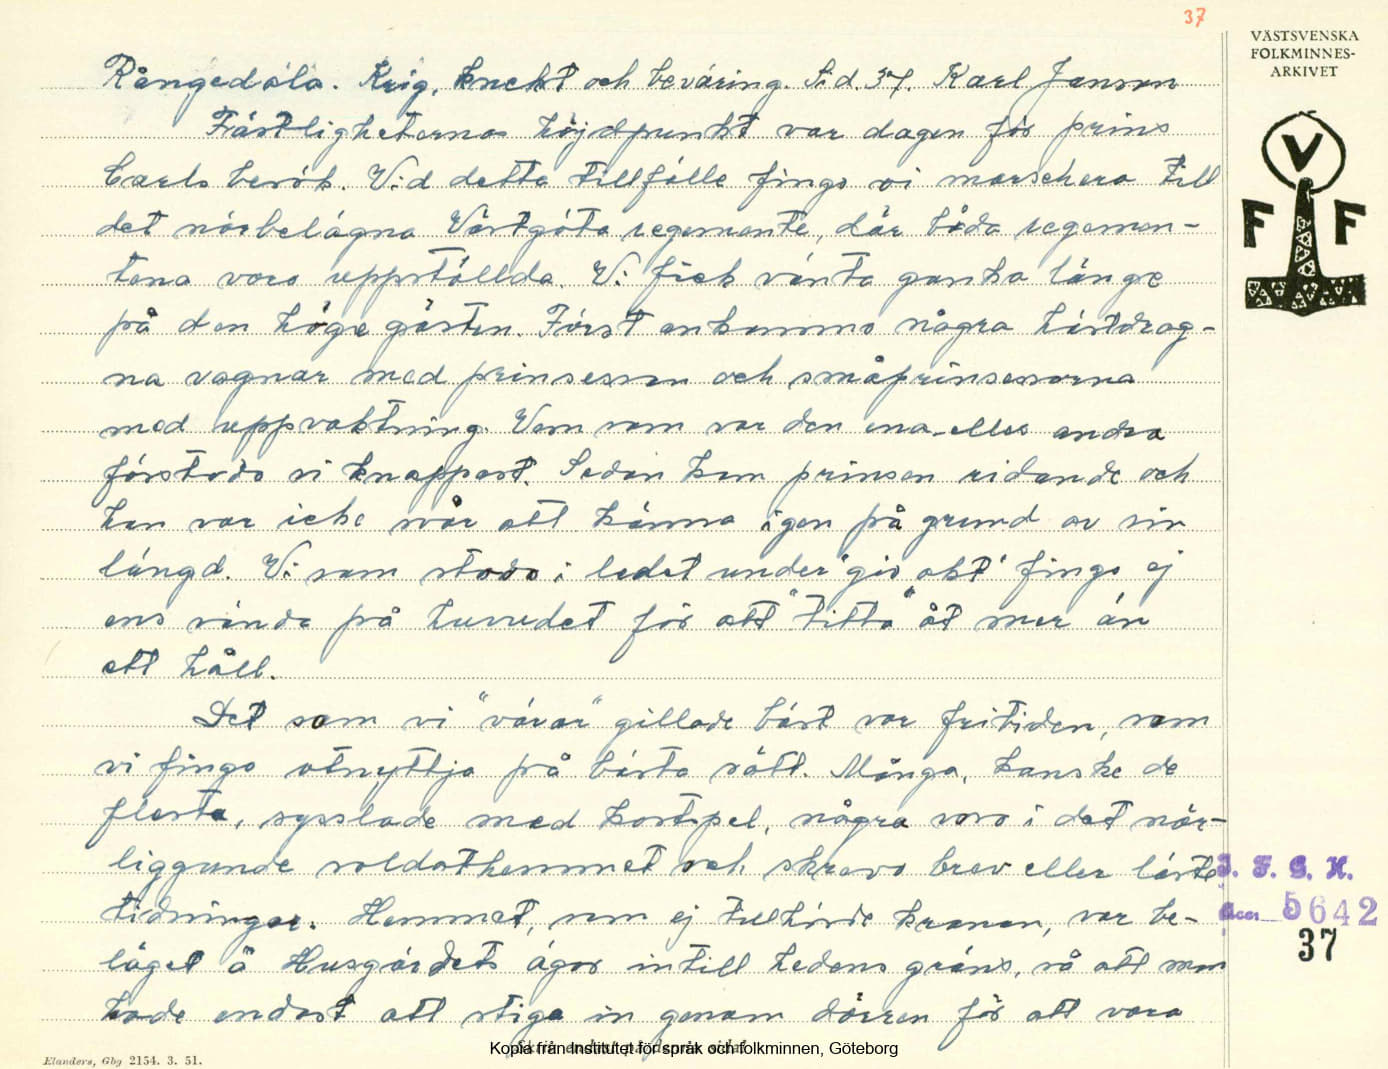 37
VÄSTSVENSKA
FOLKMINNES-
ARKIVET
V
F F
Rångedala. Krig, knekt och beväring. Sid. 37. Karl Janson
Fästligheternas höjdpunkt var dagen för prins
Carls besök. Vid detta tillfälle fingo vi marschera till
det närbelägna Västgöta regemente, där båda regemen-
tena voro uppställda. Vi fick vänta ganska länge
på den höge gästen. Först ankommo några hästdrag-
na vagnar med prinsessan och småprinsessorna
med uppvaktning. Vem som var den ena eller andra
förstodo vi knappast. Sedan kom prinsen ridande och
han var icke svår att känna igen på grund av sin
längd. Vi som stodo i ledet under "giv akt" fingo ej
ens vända på huvudet för att "titta" åt mer än
ett håll.
Det som vi "vävar" gillade bäst var fritiden, som
vi fingo utnyttja på bästa sätt. Många, kanske de
flesta, sysslade med kortspel, några voro i det när-
liggande soldathemmet och skrevo brev eller läste
tidningar. Hemmet, som ej tillhörde kronan, var be-
läget å Husgärdets ägor intill hedens gräns, så att man
hade endast att stiga in genom dörren för att vara
I. F. G. H.
Acc. 5642
37
Elanders, Gbg 2154. 3. 51.
Kopia från Institutet för språk och folkminnen, Göteborg